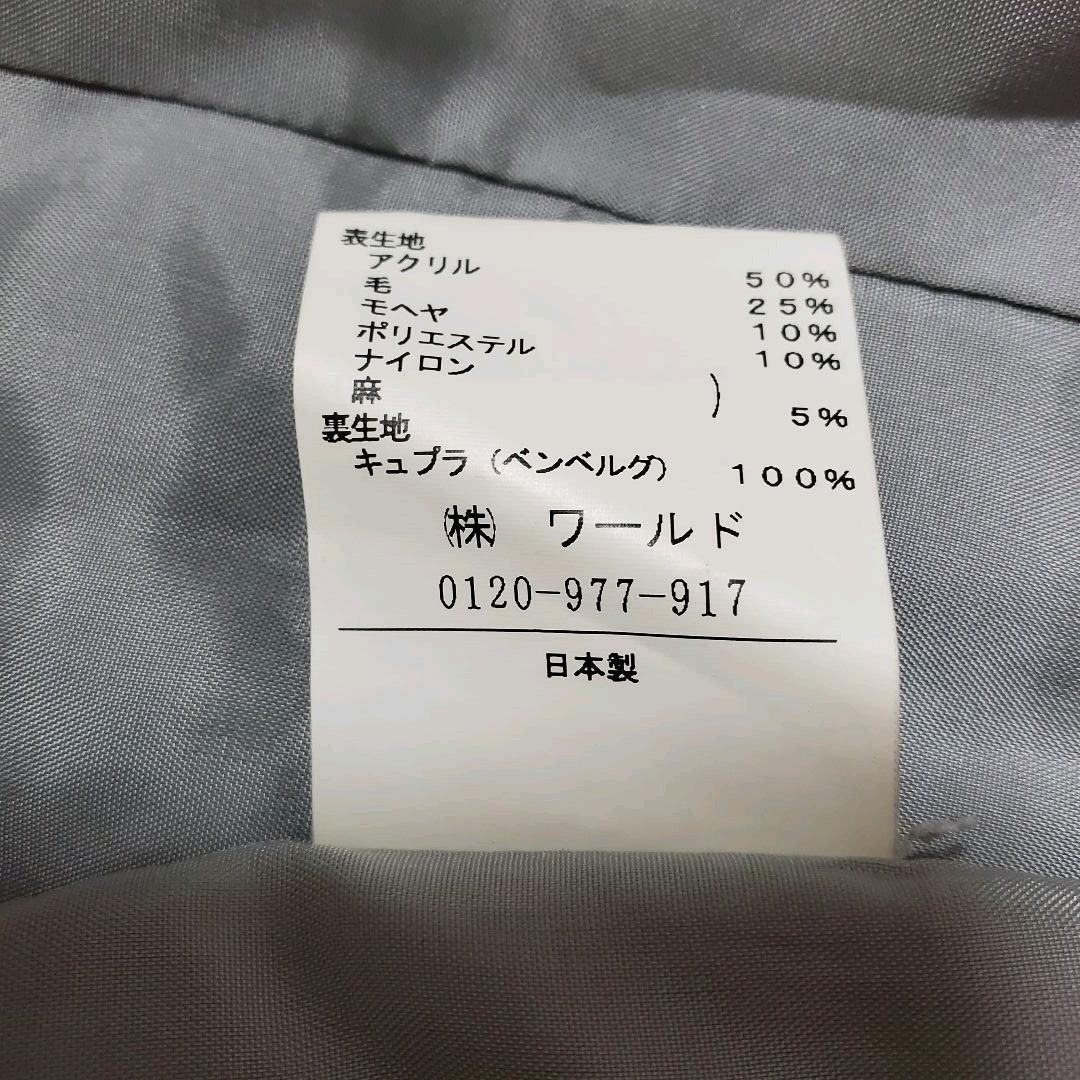 表生地
アクリル ５０％
毛 ２５％
モヘヤ １０％
ポリエステル １０％
ナイロン
麻 ） ５％
裏生地
キュプラ（ベンベルグ） １００％
㈱ ワールド
0120-977-917
日本製